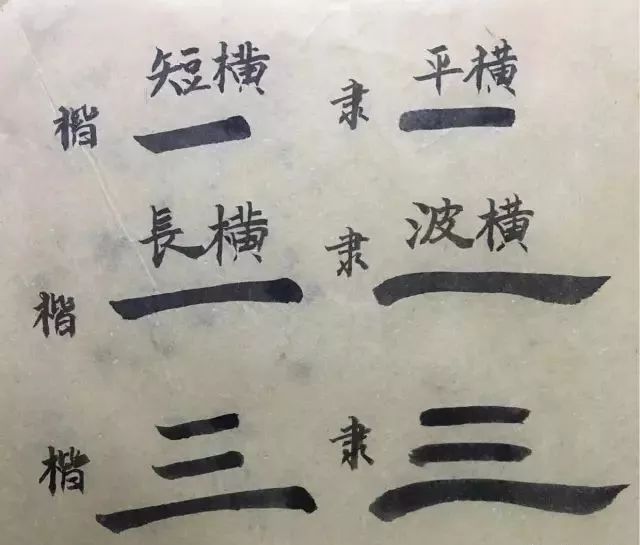 短橫 平橫
楷 一 隶 一
長橫 波橫
楷 一 隶 一
楷 三 隶 三